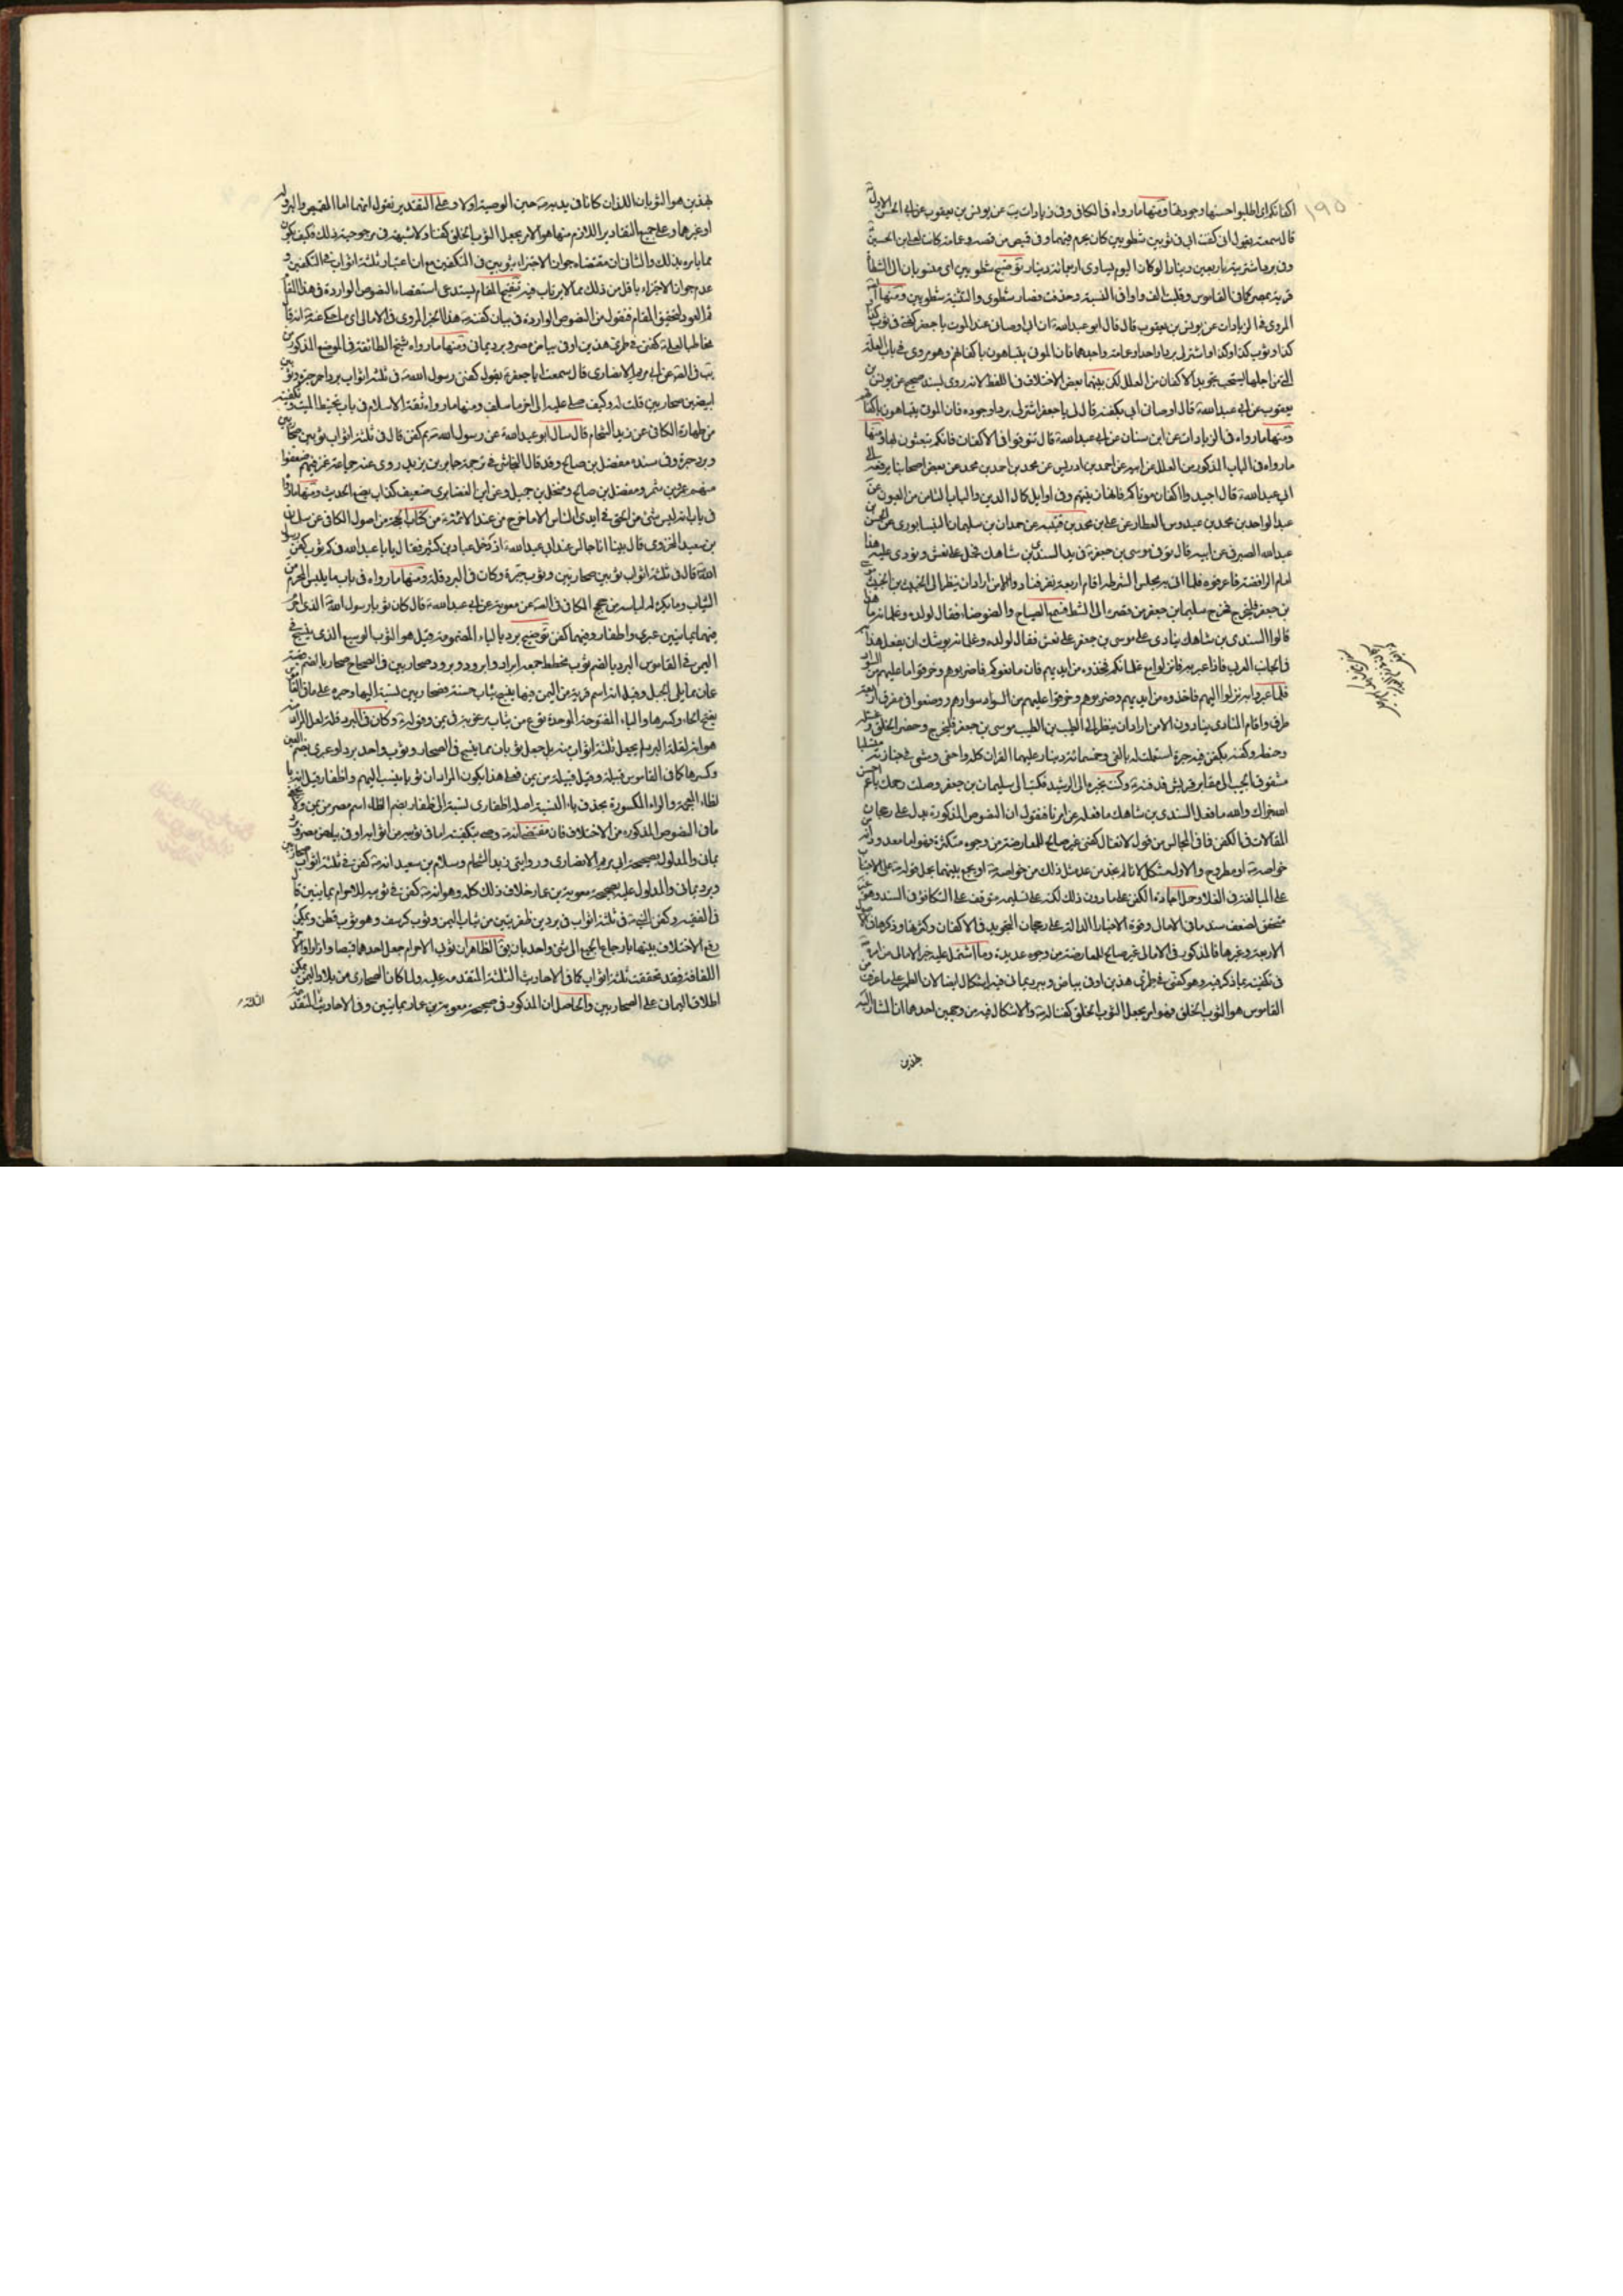 ١٩٥
اكفانكم اى اطلبوا احسنها وجودتها ومنها ما رواه فى الكافى وفى زيادات يب عن يونس بن يعقوب عن ابى الحسن الاول
قال سمعته يقول انى كفنت ابى فى ثوبين شطويين كان يحرم فيهما وفى قميص من قمصه وعمامة كانت لعلى بن الحسين
وفى برد اشتريته باربعين دينارا لو كان اليوم لساوى اربعمائة دينار توضيح شطويين اى منسوبان الى الشطا
قرية بمصر كما فى القاموس وقلبت الف واوا فى النسبة وحذفت فصار شطوى والتثنية شطويين ومنها
المروى فى الزيادات عن يونس بن يعقوب قال قال ابو عبد الله ان ابى اوصانى عند الموت يا جعفر كفنى فى ثوب كذا
كذا وثوب كذا وكذا واشتر لى بردا واحدا وعمامة واجدهما فان الموتى يتباهون باكفانهم وهو مروى فى باب العلة
التى من اجلها يستحب تجويد الاكفان من العلل لكن بينهما بعض الاختلاف فى اللفظ لانه روى بسند صحيح عن يونس بن
يعقوب عن ابى عبد الله قال اوصانى ابى بكفنه قال لى يا جعفر اشتر لى بردا وجوده فان الموتى يتباهون باكفانهم
ومنها ما رواه فى الزيادات عن ابن سنان عن ابى عبد الله قال تنوقوا فى الاكفان فانكم تبعثون بها ومنها
ما رواه فى الباب المذكور من العلل عن ابيه عن احمد بن ادريس عن محمد بن احمد عن بعض اصحابنا يرفعه الى
ابى عبد الله قال اجيدوا اكفان موتاكم فانها زينتهم وفى اوايل كمال الدين والباب الثامن من العيون عن
عبد الواحد بن محمد بن عبدوس العطار عن على بن محمد بن قتيبة عن حمدان بن سليمان النيسابورى عن الحسن بن
عبد الله الصيرفى عن ابيه قال توفى موسى بن جعفر فى يد السندى بن شاهك فحمل على نعش ونودى عليه هذا
امام الرافضة فاعرفوه فلما اتى به مجلس الشرطة اقام اربعة نفر فنادوا الا من اراد ان ينظر الى الخبيث بن الخبيث موسى
بن جعفر فليخرج فخرج سليمان بن جعفر من قصره الى الشط فسمع الصياح والضوضاء فقال لولده وغلمانه ما هذا
قالوا السندى بن شاهك ينادى على موسى بن جعفر على نعش فقال لولده وغلمانه يوشك ان يفعل هذا به
فى الجانب الغربى فاذا عبر به فانزلوا مع غلمانكم فخذوه من ايديهم فان مانعوكم فاضربوهم وخرقوا ما عليهم من السواد
فلما عبروا به نزلوا اليهم فاخذوه من ايديهم وضربوهم وخرقوا عليهم من السواد سوادهم ووضعوا فى مفرق اربعة
طرق واقام المنادى ينادون الا من اراد ان ينظر الى الطيب بن الطيب موسى بن جعفر فليخرج وحضر الخلق وغسله
وحنطه وكفنه بكفن فيه حبرة استعملت له بالفى وخمسمائة دينار عليها القران كله واحتفى ومشى فى جنازته متسلبا
مشقوق الجيب الى مقابر قريش فدفنه وكتب بخبره الى الرشيد فكتب الى سليمان بن جعفر وصلت رحمك يا عم
احسن الله جزاك والله ما فعل السندى بن شاهك ما فعله عن امرنا فنقول ان النصوص المذكورة تدل على رجحان
المغالات فى الكفن فما فى المجالس من قوله لا تغال كفنى غير صالح للمعارضة من وجوه متكثرة فهو اما معدود من
خواصه او مطروح والاول مشكل لانا لم نجد من عد مثل ذلك من خواصه او يجمع بينهما بحمل قوله على الاجتناب
على المبالغة فى الغلاء وحمل اجادة الكفن على ما دون ذلك لكنه على تسليمه متوقف على التكافؤ فى السند وهو غير
متحقق لضعف سند ما فى الامالى وقوة الاخبار الدالة على رجحان التجويد فى الاكفان وكثرتها وذكرها فى الاصول
الاربعة وغيرها فالمذكور فى الامالى غير صالح للمعارضة من وجوه عديدة وما اشتمل عليه خبر الامالى من امره
فى تكفينه بما ذكر فيه وهو كفنى فى طمرى هذين او فى بياض وبرد يمانى فيه اشكال ايضا لان الطمر على ما عرفت من
القاموس هو الثوب الخلق فهو امر بجعل الثوب الخلق كفنا له والاشكال فيه من وجهين احدهما ان المشار اليه
بهذين
بهذين هو الثوبان اللذان كانا فى يديه حين الوصية اولا وعلى التقدير نقول انهما اما القميص والبرد
او غيرهما وعلى جميع التقادير اللازم منها هو الامر بجعل الثوب الخلق كفنا ولا شبهة فى مرجوحية ذلك فكيف يكون
مما يامره بذلك والثانى ان مقتضاه جواز الاجتزاء بثوبين فى التكفين مع ان اعتبار ثلثة اثواب فى التكفين و
عدم جواز الاجتزاء باقل من ذلك مما لا يرتاب فيه تنقيح المقام يستدعى استقصاء النصوص الواردة فى هذا المقام
ثم العود لتحقيق المقام فنقول من النصوص الواردة فى بيان كفنه هذا الخبر المروى فى الامالى اى ما حكى عنه انه قال
مخاطبا لعلى كفنى فى طمرى هذين او فى بياض مصر وبرد يمانى ومنها ما رواه شيخ الطائفة فى الموضع المذكور من
يب فى الصحيح عن ابى مريم الانصارى قال سمعت ابا جعفر يقول كفن رسول الله فى ثلثة اثواب برد احمر حبرة وثوبين
ابيضين صحاريين قلت له وكيف صلى عليه الى اخر ما سلف ومنها ما رواه ثقة الاسلام فى باب تحنيط الميت وتكفينه
من طهارة الكافى عن زيد الشحام قال سال ابو عبد الله عن رسول الله بم كفن قال فى ثلثة اثواب ثوبين صحاريين
وبرد حبرة وفى سنده مفضل بن صالح وقد قال النجاشى فى ترجمة جابر بن يزيد روى عنه جماعة غمز فيهم وضعفوا
منهم عمرو بن شمر ومفضل بن صالح ومنخل بن جميل وعن ابن الغضايرى ضعيف كذاب يضع الحديث ومنها ما رواه
فى باب انه ليس شئ من الحق فى ايدى الناس الا ما خرج من عند الائمة من كتاب الحجة من اصول الكافى عن سلام
بن سعيد المخزومى قال بينا انا جالس عند ابى عبد الله اذ دخل عباد بن كثير فقال يا ابا عبد الله فى كم ثوب كفن رسول
الله قال فى ثلثة اثواب ثوبين صحاريين وثوب حبرة وكان فى البرد قلة ومنها ما رواه فى باب ما يلبس المحرم من
الثياب وما يكره له لباسه من حج الكافى فى الصحيح عن معوية عن ابى عبد الله قال كان ثوبا رسول الله الذى احرم
فيهما يمانيين عبرى واظفار وفيهما كفن توضيح برد بالباء المضمومة قيل هو الثوب الوسيع الذى ينسج فى
اليمن فى القاموس البرد بالضم ثوب مخطط جمعه ابراد وابرد وبرود وصحاريين فى الصحاح صحار بالضم قصبة
عمان مما يلى الجبل وقيل انه اسم قرية من اليمن فيها ينسج ثياب حسنة وصحاريين نسبة اليها وحبره على ما فى القاموس
بفتح الحاء وكسرها والباء المفتوحة الموحدة نوع من ثياب يمن وقوله وكان فى البرد قلة لعل المراد منه
هو انه لقلة البرد لم يجعل ثلثة اثواب منه بل جعل ثوبان مما ينسج فى الصحار وثوب واحد بردا وعبرى بضم العين
وكسرها كما فى القاموس قبيلة وقيل قبيلة من يمن فعلى هذا يكون المراد ان ثوبا ينسب اليهم واظفار قيل انه با
لظاء المعجمة والراء المكسورة بحذف ياء النسبة اصله اظفارى نسبة الى ظفار بضم الظاء اسم مصر من يمن ولا يخفى
ما فى النصوص المذكورة من الاختلاف فان مقتضى انه وصى بتكفينه اما فى ثوبيه من اثوابه او فى بياض مصر وبرد
يمان والمدلول صحيحة ابى مريم الانصارى وروايتى زيد الشحام وسلام بن سعيد انه كفن فى ثلثة اثواب صحاريين
وبرد يمانى والمدلول عليه بصحيحة معوية بن عمار خلاف ذلك كله وهو انه كفن فى ثوبيه للاحرام يمانيين قال
فى الفقيه وكفن النبى فى ثلثة اثواب فى بردين ظفريتين من ثياب اليمن وثوب كرسف وهو ثوب قطن ويمكن
رفع الاختلاف بينها بارجاع الجميع الى شئ واحد بان يق الظاهر ان ثوب الاحرام جعل احدهما قميصا وازارا والاخر
اللفافة فقد تحققت ثلثة اثواب كما فى الاحاديث الثلثة المتقدمة عليه ولما كان الصحارى من بلاد اليمن يمكن
اطلاق اليمانى على الصحاريين والحاصل ان المذكور فى صحيحة معوية بن عمار يمانيين وفى الاحاديث المتقدمة
الثلثة